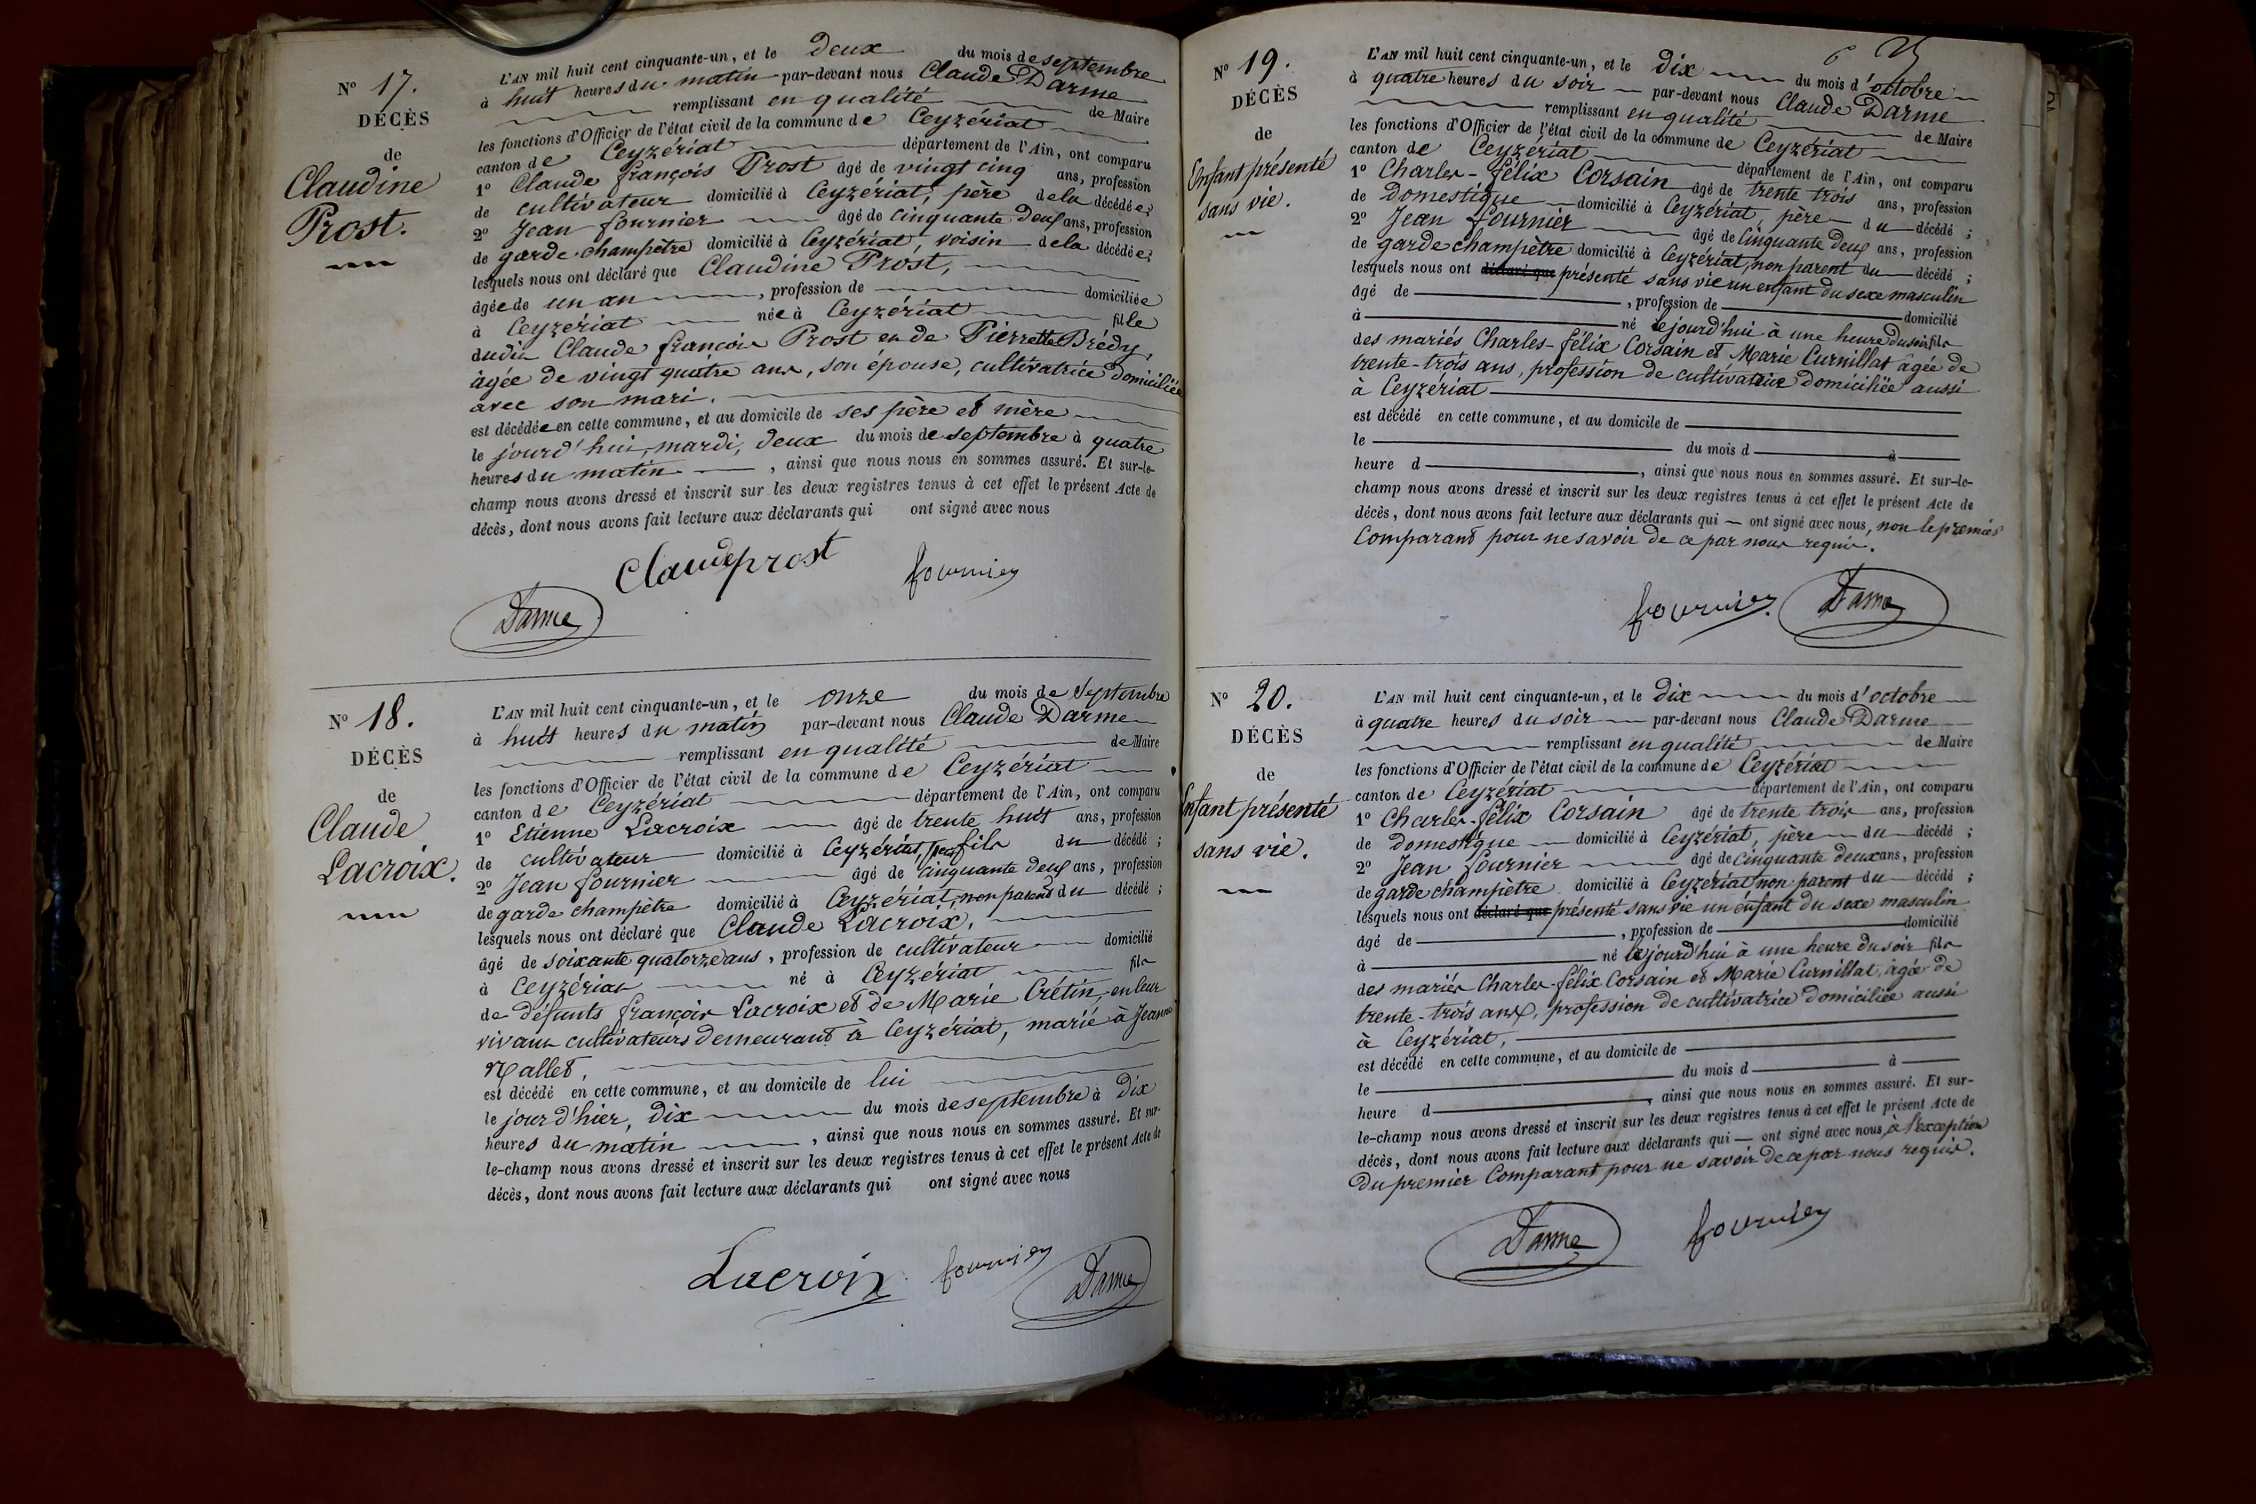 N° 17.
DÉCÈS
de
Claudine
Prost.
L'AN mil huit cent cinquante-un, et le deux du mois de septembre
à huit heures du matin par-devant nous Claude Darme
remplissant en qualité de Maire
les fonctions d'Officier de l'état civil de la commune de Ceyzériat
canton de Ceyzériat département de l'Ain, ont comparu
1° Claude françois Prost âgé de vingt cinq ans, profession
de cultivateur domicilié à Ceyzériat, père de la décédée;
2° Jean fournier âgé de cinquante deux ans, profession
de garde champêtre domicilié à Ceyzériat, voisin de la décédée;
lesquels nous ont déclaré que Claudine Prost,
âgée de un an, profession de domiciliée
à Ceyzériat née à Ceyzériat fille
dudit Claude françois Prost et de Pierrette Brédy,
âgée de vingt quatre ans, son épouse, cultivatrice domiciliée
avec son mari.
est décédée en cette commune, et au domicile de ses père et mère
le jourd'hui, mardi, deux du mois de septembre à quatre
heures du matin, ainsi que nous nous en sommes assuré. Et sur-le-
champ nous avons dressé et inscrit sur les deux registres tenus à cet effet le présent Acte de
décès, dont nous avons fait lecture aux déclarants qui ont signé avec nous
Claudeprost fournier
Darme
N° 18.
DÉCÈS
de
Claude
Lacroix.
L'AN mil huit cent cinquante-un, et le onze du mois de Septembre
à huit heures du matin par-devant nous Claude Darme
remplissant en qualité de Maire
les fonctions d'Officier de l'état civil de la commune de Ceyzériat
canton de Ceyzériat département de l'Ain, ont comparu
1° Etienne Lacroix âgé de trente huit ans, profession
de cultivateur domicilié à Ceyzériat, fils du décédé;
2° Jean fournier âgé de cinquante deux ans, profession
de garde champêtre domicilié à Ceyzériat, non parent du décédé;
lesquels nous ont déclaré que Claude Lacroix,
âgé de soixante quatorze ans, profession de cultivateur domicilié
à Ceyzériat né à Ceyzériat fils
de défunts françois Lacroix et de Marie Crétin, en leur
vivant cultivateurs demeurant à Ceyzériat, marié à Jeanne
Nallet,
est décédé en cette commune, et au domicile de lui
le jour d'hier, dix du mois de septembre à dix
heures du matin, ainsi que nous nous en sommes assuré. Et sur-
le-champ nous avons dressé et inscrit sur les deux registres tenus à cet effet le présent Acte de
décès, dont nous avons fait lecture aux déclarants qui ont signé avec nous
Lacroix fournier Darme
N° 19.
DÉCÈS
de
Enfant présenté
sans vie.
L'AN mil huit cent cinquante-un, et le dix du mois d'octobre
à quatre heures du soir par-devant nous Claude Darme
remplissant en qualité de Maire
les fonctions d'Officier de l'état civil de la commune de Ceyzériat
canton de Ceyzériat département de l'Ain, ont comparu
1° Charles-félix Corsain âgé de trente trois ans, profession
de Domestique domicilié à Ceyzériat, père du décédé;
2° Jean fournier âgé de Cinquante deux ans, profession
de garde champêtre domicilié à Ceyzériat, non parent du décédé;
lesquels nous ont déclaré que présenté sans vie un enfant du sexe masculin
âgé de, profession de domicilié
à né le jourd'hui à une heure du soir fils
des mariés Charles-félix Corsain et Marie Curnillat âgée de
trente-trois ans, profession de cultivatrice domiciliée aussi
à Ceyzériat
est décédé en cette commune, et au domicile de
le du mois d à
heure d, ainsi que nous nous en sommes assuré. Et sur-le-
champ nous avons dressé et inscrit sur les deux registres tenus à cet effet le présent Acte de
décès, dont nous avons fait lecture aux déclarants qui ont signé avec nous, non le premier
Comparant pour ne savoir de ce par nous requis.
fournier Darme
N° 20.
DÉCÈS
de
Enfant présenté
sans vie.
L'AN mil huit cent cinquante-un, et le dix du mois d'octobre
à quatre heures du soir par-devant nous Claude Darme
remplissant en qualité de Maire
les fonctions d'Officier de l'état civil de la commune de Ceyzériat
canton de Ceyzériat département de l'Ain, ont comparu
1° Charles-félix Corsain âgé de trente trois ans, profession
de domestique domicilié à Ceyzériat, père du décédé;
2° Jean fournier âgé de cinquante deux ans, profession
de garde champêtre domicilié à Ceyzériat non parent du décédé;
lesquels nous ont déclaré que présenté sans vie un enfant du sexe masculin
âgé de, profession de domicilié
à né le jourd'hui à une heure du soir fils
des mariés Charles-félix Corsain et Marie Curnillat, âgée de
trente-trois ans, profession de cultivatrice domiciliée aussi
à Ceyzériat,
est décédé en cette commune, et au domicile de
le du mois d à
heure d, ainsi que nous nous en sommes assuré. Et sur-
le-champ nous avons dressé et inscrit sur les deux registres tenus à cet effet le présent Acte de
décès, dont nous avons fait lecture aux déclarants qui ont signé avec nous, à l'exception
du premier Comparant pour ne savoir de ce par nous requis.
Darme fournier